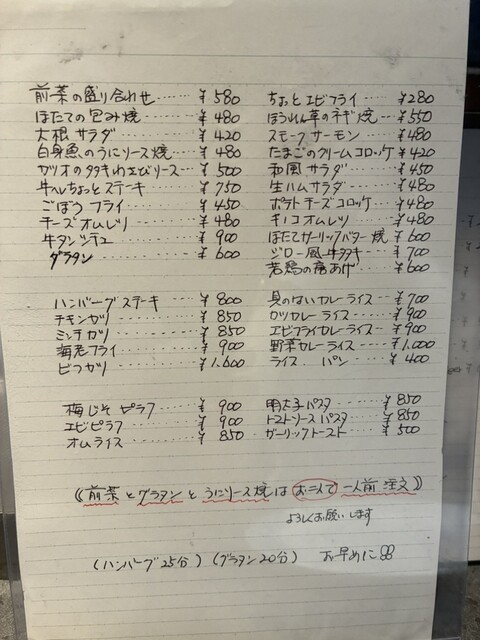 前菜の盛り合わせ‥‥‥ ¥580
ほたての包み焼‥‥‥ ¥480
大根サラダ‥‥‥ ¥420
白身魚のうにソース焼‥‥ ¥480
カツオのタタキわエビソース‥‥ ¥500
牛ヘレちょっとステーキ ¥750
ごぼうフライ‥‥‥ ¥450
チーズオムレツ‥‥‥ ¥480
牛タンシチュー‥‥‥ ¥900
グラタン‥‥‥ ¥600
ちょっとエビフライ‥‥‥ ¥280
ほうれん草の玉子焼‥‥ ¥550
スモークサーモン‥‥‥ ¥480
たまごのクリームコロッケ ¥420
和風サラダ‥‥‥ ¥450
生ハムサラダ‥‥‥ ¥480
ポテトチーズコロッケ‥‥ ¥480
キノコオムレツ‥‥‥ ¥480
ほたてガーリックバター焼 ¥600
ジロー風牛タタキ‥‥ ¥700
若鶏の唐あげ‥‥‥ ¥600
ハンバーグステーキ‥‥‥ ¥800
チキンカツ‥‥‥ ¥850
ミンチカツ‥‥‥ ¥850
海老フライ‥‥‥ ¥900
ビフカツ‥‥‥ ¥1.600
具のないカレーライス‥‥ ¥700
カツカレーライス‥‥‥ ¥900
エビフライカレーライス‥‥ ¥900
野菜カレーライス‥‥‥ ¥1.000
ライス パン‥‥‥ ¥400
梅じそピラフ‥‥‥ ¥900
エビピラフ‥‥‥ ¥900
オムライス‥‥‥ ¥850
明太子パスタ‥‥‥ ¥850
トマトソースパスタ‥‥ ¥850
ガーリックトースト‥‥ ¥500
《前菜とグラタンとうにソース焼はお二人で一人前注文》
よろしくお願いします
(ハンバーグ25分)(グラタン20分) お早めに